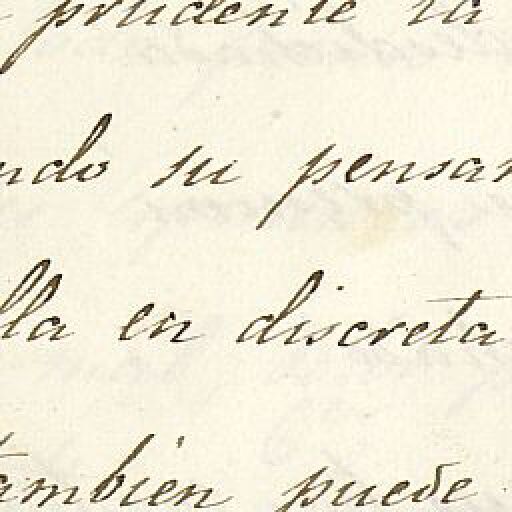 prudente la
ndo su pensar
lla en discreta
tambien puede